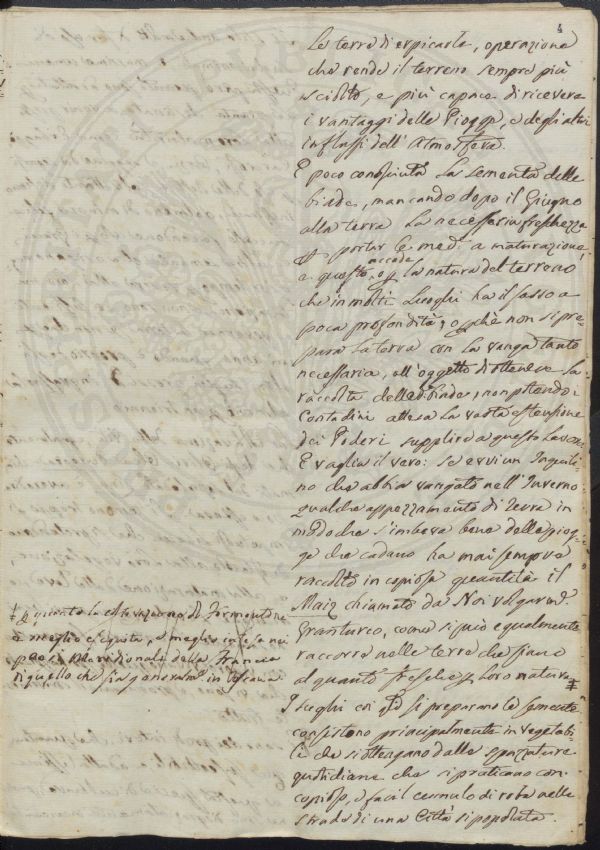 4
Le terre di erpicarle, operazione
che rende il terreno sempre più
sciolto, e più capace di ricevere
i vantaggi delle Piogge, e degli altri
influssi dell'Atmosfera.
È poco conosciuta la sementa delle
biade, mancando dopo il Giugno
alla terra la necessaria freschezza
p portar le med.e a maturazione,
accade
a questo, o p la natura del terreno
che in molti Luoghi ha il sasso a
poca profondità, o p chè non si pre-
para la terra con la vanga tanto
necessaria, all'oggetto di ottenere la
raccolta delle biade, non potendo i
Contadini attesa la vasta estensione
dei Poderi supplire a questo Lavoro
E vaglia il vero: se evvi un Inquili
no che abbia vangato nell'Inverno
qualche appezzamento di Terra in
modo che s'imbeva bene delle piog-
ge che cadano ha mai sempre
raccolto in copiosa quantità il
Maiz chiamato da Noi volgarm.e
Granturco, come si può egualmente
raccorre nelle terre che siano
alquanto fresche p loro natura ‡
I sughi coi q.li si preparano le semente
consistono principalmente in vegetabi-
li che si ottengano dalle spazzature
quotidiane che si praticano con
copioso, e facil cumulo di roba nelle
strade di una Città sì popolata
‡ p quanto la coltivazione di Formentone
è meglio eseguita, e meglio intesa nei
paesi Meridionali della Francia
di quello che sia generalm.e in Toscana